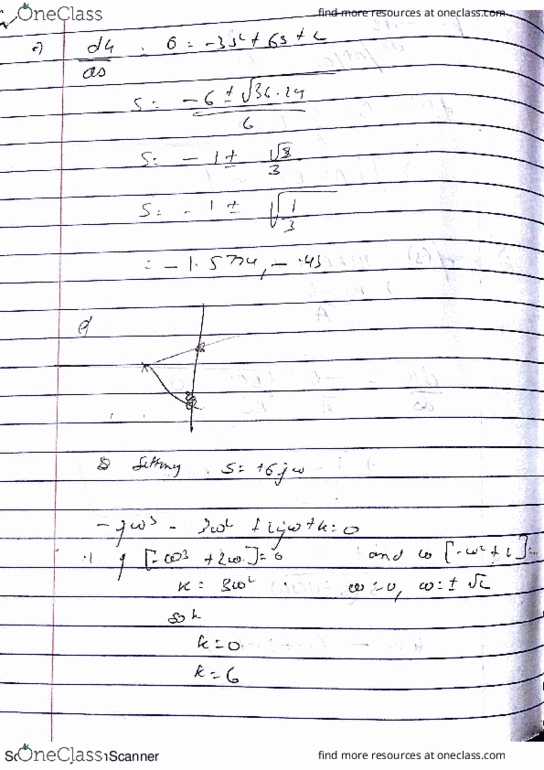 OneClass
find more resources at oneclass.com
dk/ds : 0 = -3s² + 6s + 2
S = -6 ± √36-24 / 6
S = -1 ± √3/3
S = -1 ± √1/3
= -1.5774, -.43
Setting S = +6jω
-jω³ - 3ω² + 2jω + k = 0
j[-ω³ + 2ω] = 0 and ω[-ω² + 2] =
k = 3ω² ω = 0, ω = ± √2
So k
k = 0
k = 6
OneClass
Scanner
find more resources at oneclass.com